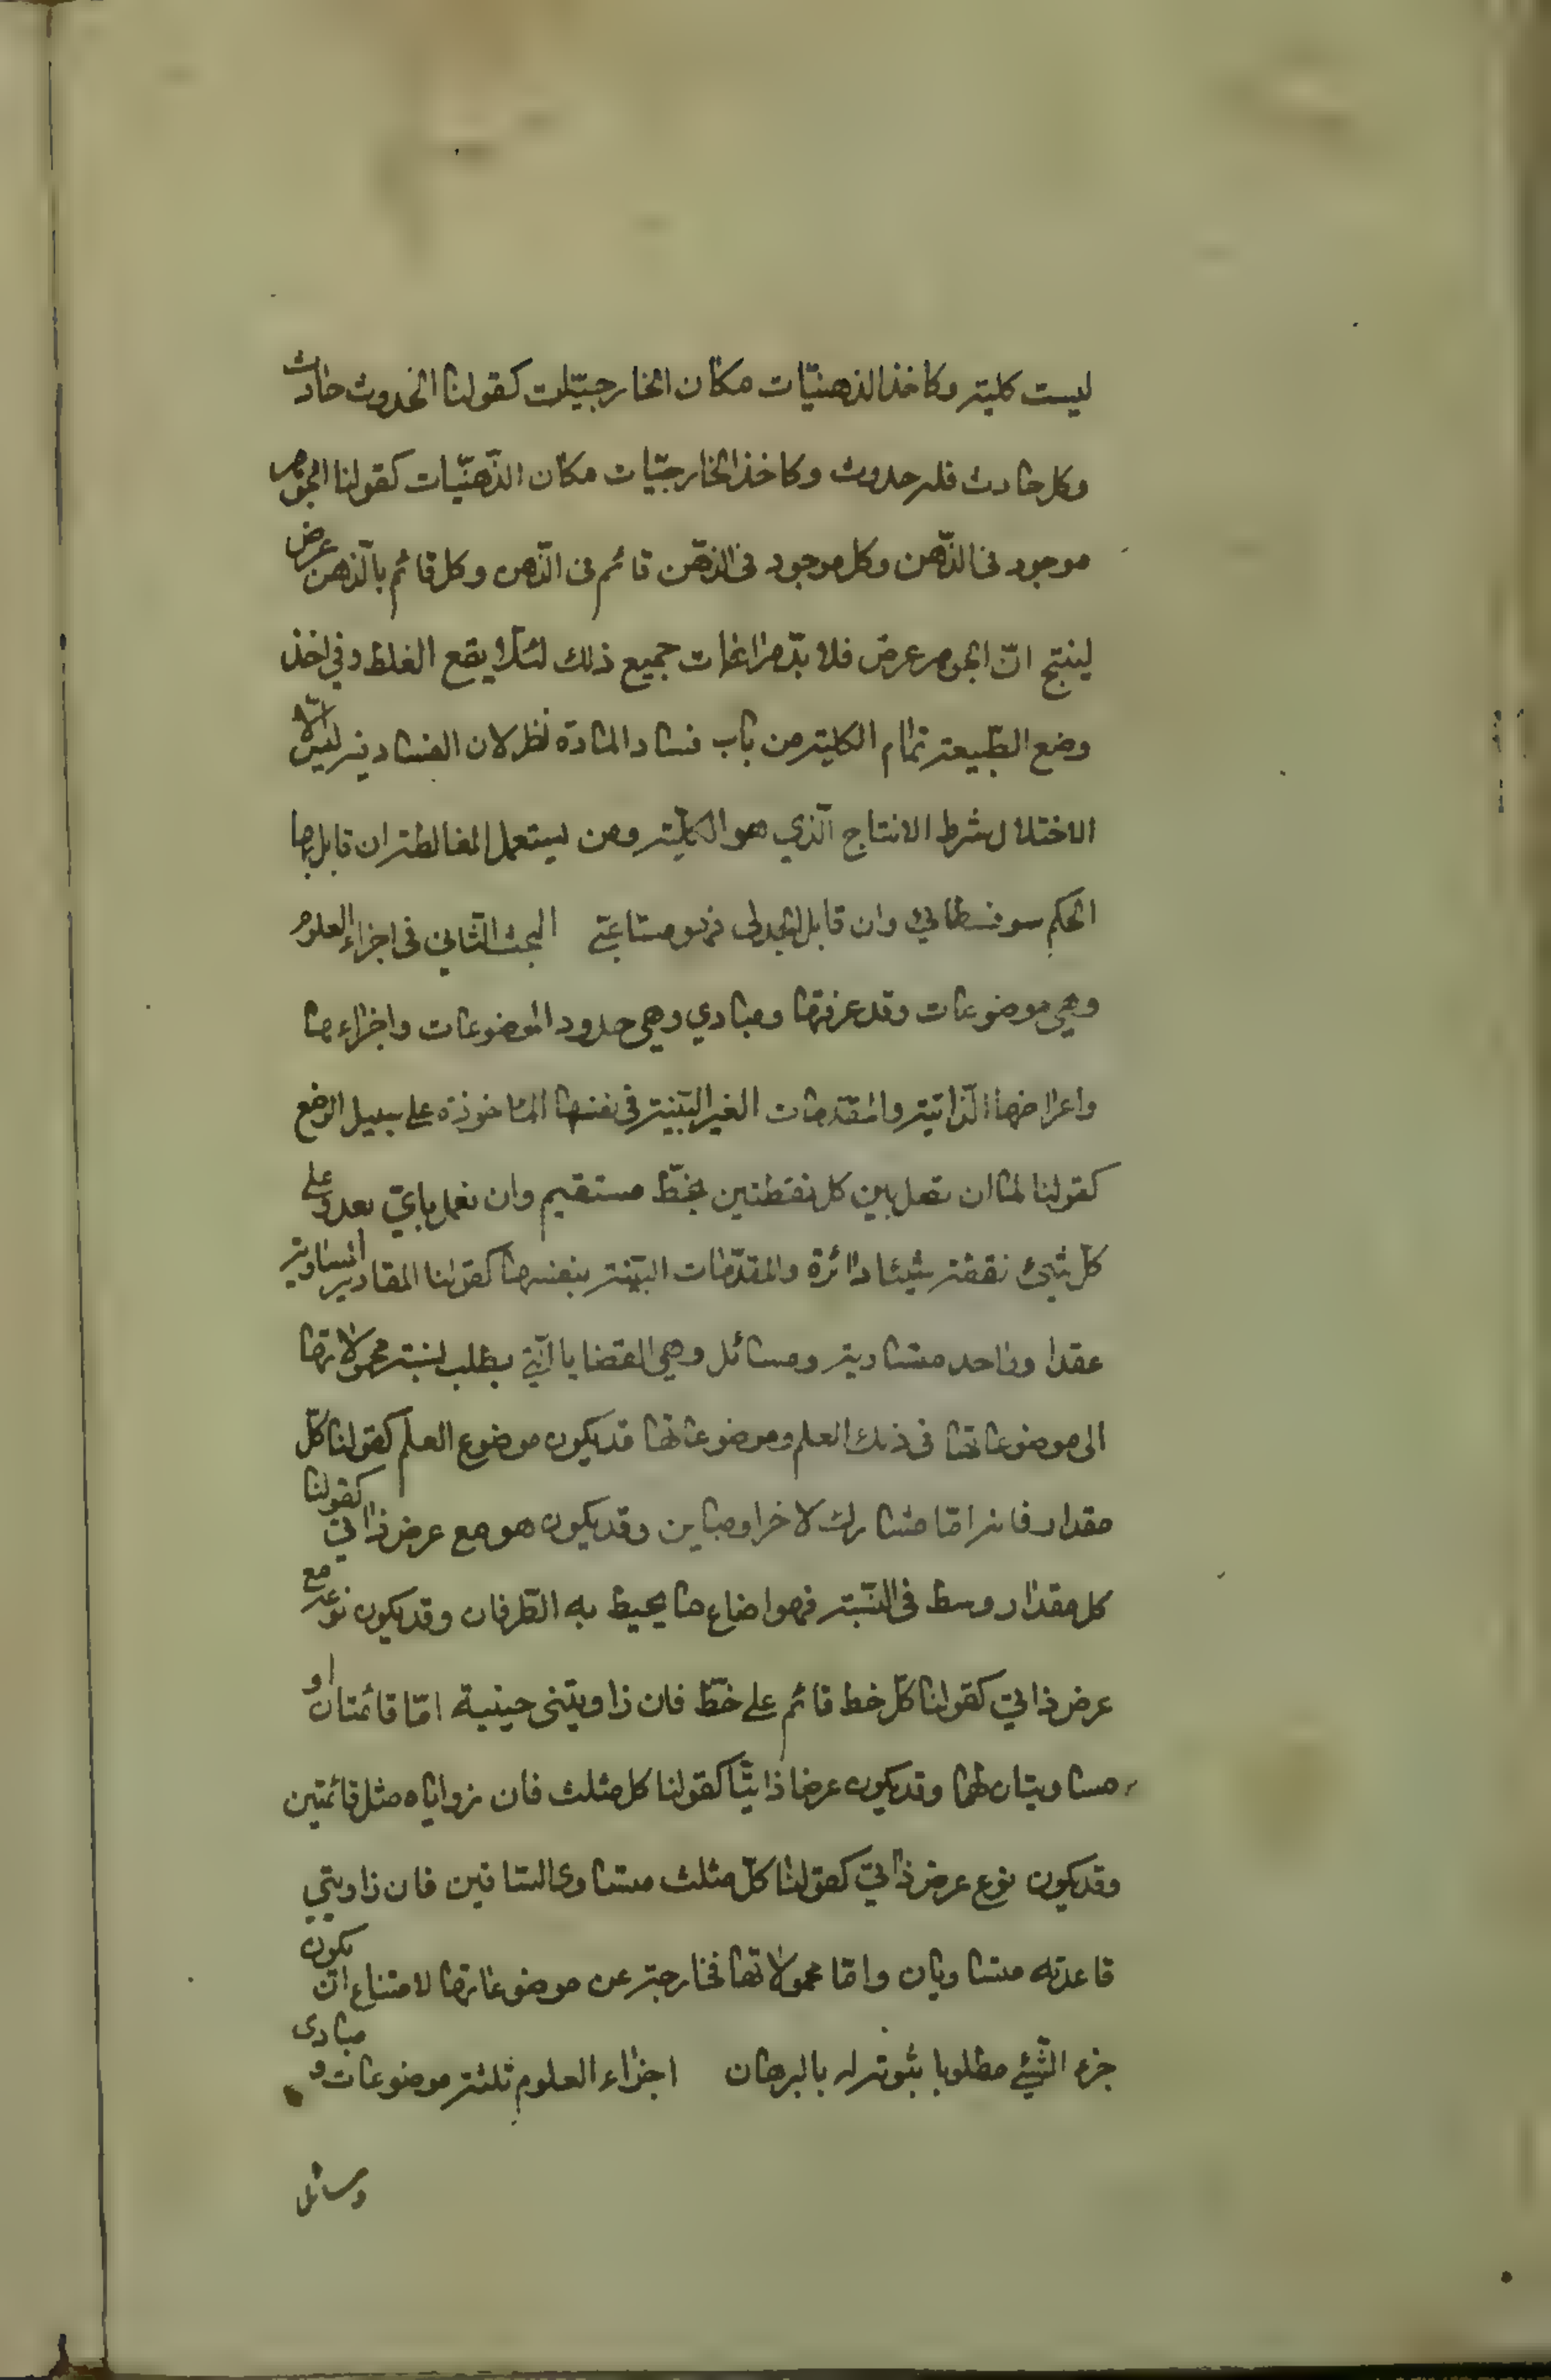 ليست كلية وكاخذ الذهنيّات مكان الخارجيّات كقولنا الحدوث حادث
وكل حادث فله حدوث وكاخذ الخارجيّات مكان الذّهنيّات كقولنا الجوهر
موجود فى الذّهن وكل موجود فى الذّهن قائم فى الذّهن وكل قائم بالّذهن عرض
لينتج انّ الجوهر عرض فلا بدّ مراعات جميع ذلك لئلّا يقع الغلط وفي اخذ
وضع الطّبيعة تمام الكلية من باب فساد المادة نظر لان الفساد فيه ليس الّا
الاختلال شرط الانتاج الّذي هو الكلّية ومن يستعمل المغالطة ان قابل بها
الحكيم سوفسطائي وان قابل الجدلى فهو مشاغبي البحث الثّاني فى اجزاء العلوم
وهي موضوعات وقد عرفتها ومبادي وهي حدود الموضوعات واجزاءها
واعراضها الّذاتية والمقدّمات الغير البيّنة فى نفسها الماخوذة على سبيل الوضع
كقولنا لنا ان نصل بين كل نقطتين بخطّ مستقيم وان نعمل باىّ بعد وعلى
كلّ شيئ نقطة شيئا دائرة والمقدّمات البيّنة بنفسها كقولنا المقادير المساوية
مقدا واحد متساوية ومسائل وهي القضايا الّتي يطلب نسبة محمولاتها
الى موضوعاتها فى ذلك العلم وموضوعاتها قد يكون موضوع العلم كقولنا كلّ
مقدار فانه امّا مشارك لاخر او مباين وقد يكون هو مع عرض ذاتي كقولنا
كل مقدار وسط فى النّسبة فهو اضلع ما يحيط به الطّرفان وقد يكون نوعه مع
عرض ذاتي كقولنا كلّ خط قائم على خطّ فان زاويتى جنبيه امّا قائمتان او
مساويتان لهما وقد يكون عرضا ذاتيّا كقولنا كل مثلث فان زواياه مثل قائمتين
وقد يكون نوع عرض ذاتي كقولنا كلّ مثلث متساوى الساقين فان زاويتي
قاعدته متساويان وامّا محمولاتها فخارجة عن موضوعاتها لامتناع ان يكون
جزء الشّيئ مطلوبا بثبوته له بالبرهان اجزاء العلوم ثلثة موضوعات ومبادى
ومسائل